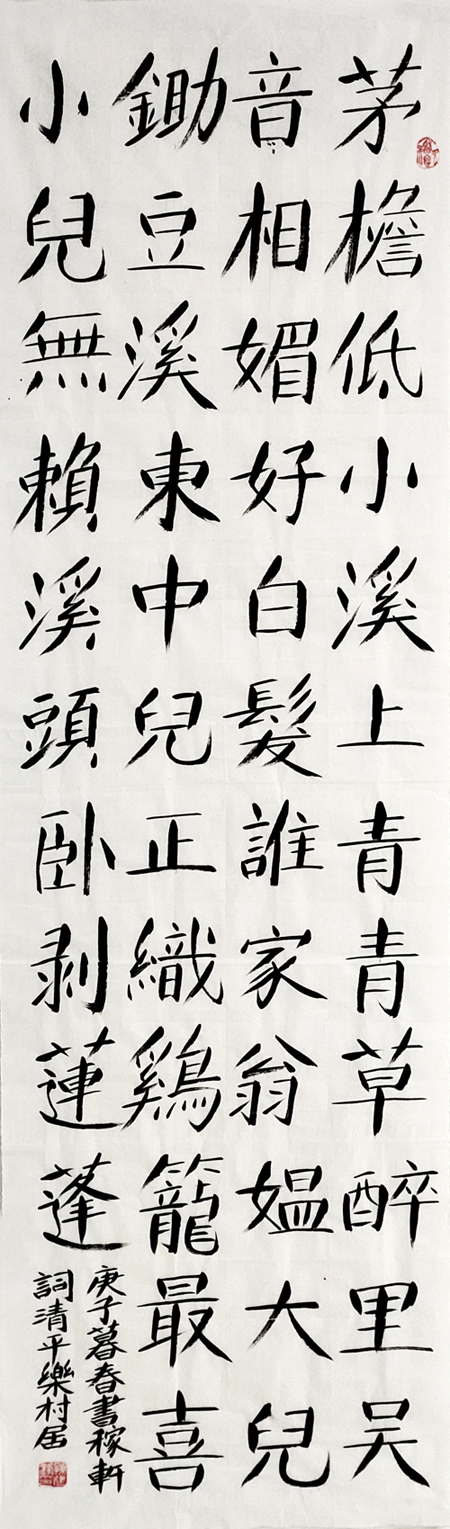 茅檐低小溪上青青草醉里吴
音相媚好白髮誰家翁媪大兒
鋤豆溪東中兒正織鷄籠最喜
小兒無賴溪頭卧剥蓮蓬
庚子暮春書稼軒
詞清平樂村居